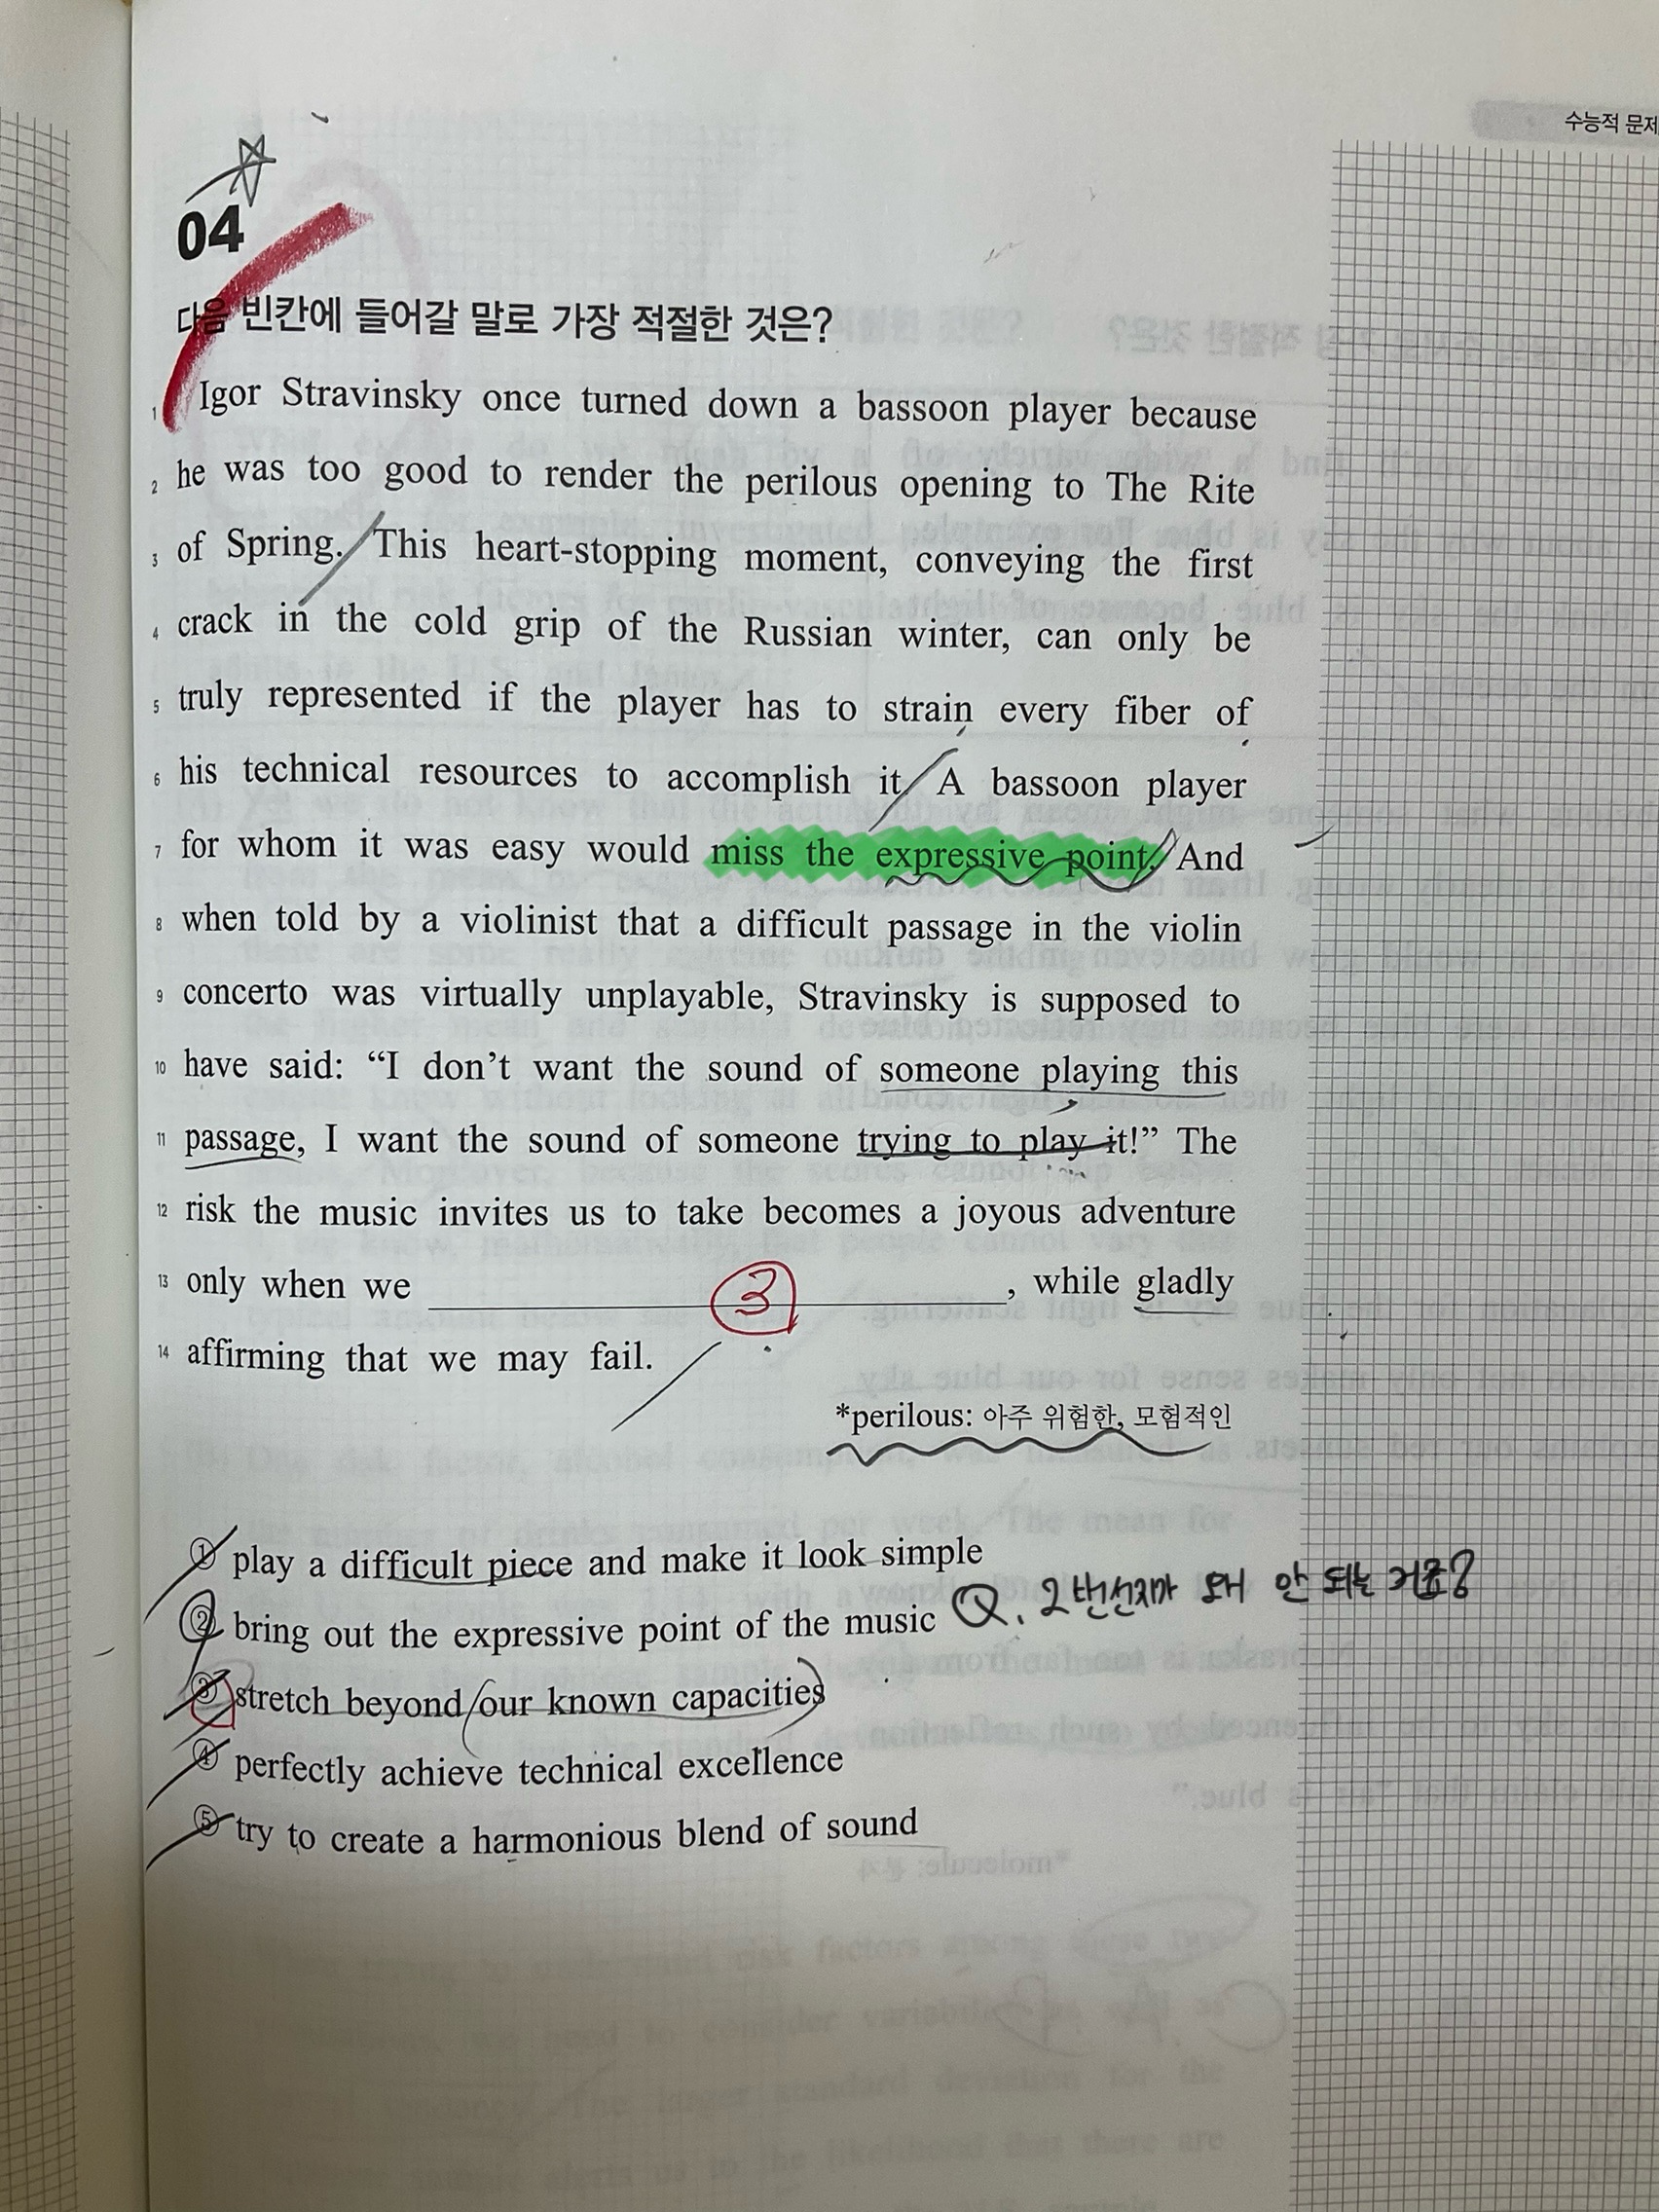 수능적 문제
04
다음 빈칸에 들어갈 말로 가장 적절한 것은?
1 Igor Stravinsky once turned down a bassoon player because
2 he was too good to render the perilous opening to The Rite
3 of Spring. This heart-stopping moment, conveying the first
4 crack in the cold grip of the Russian winter, can only be
5 truly represented if the player has to strain every fiber of
6 his technical resources to accomplish it. A bassoon player
7 for whom it was easy would miss the expressive point. And
8 when told by a violinist that a difficult passage in the violin
9 concerto was virtually unplayable, Stravinsky is supposed to
10 have said: “I don’t want the sound of someone playing this
11 passage, I want the sound of someone trying to play it!” The
12 risk the music invites us to take becomes a joyous adventure
13 only when we ③, while gladly
14 affirming that we may fail.
*perilous: 아주 위험한, 모험적인
① play a difficult piece and make it look simple
② bring out the expressive point of the music Q. 2번선지가 왜 안 되는 거죠?
③ stretch beyond our known capacities
④ perfectly achieve technical excellence
⑤ try to create a harmonious blend of sound